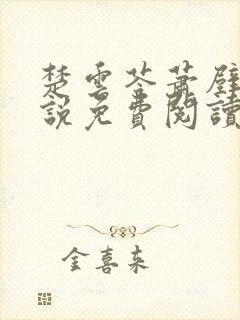 楚雲苓蕭壁
說免費閱讀
金喜來